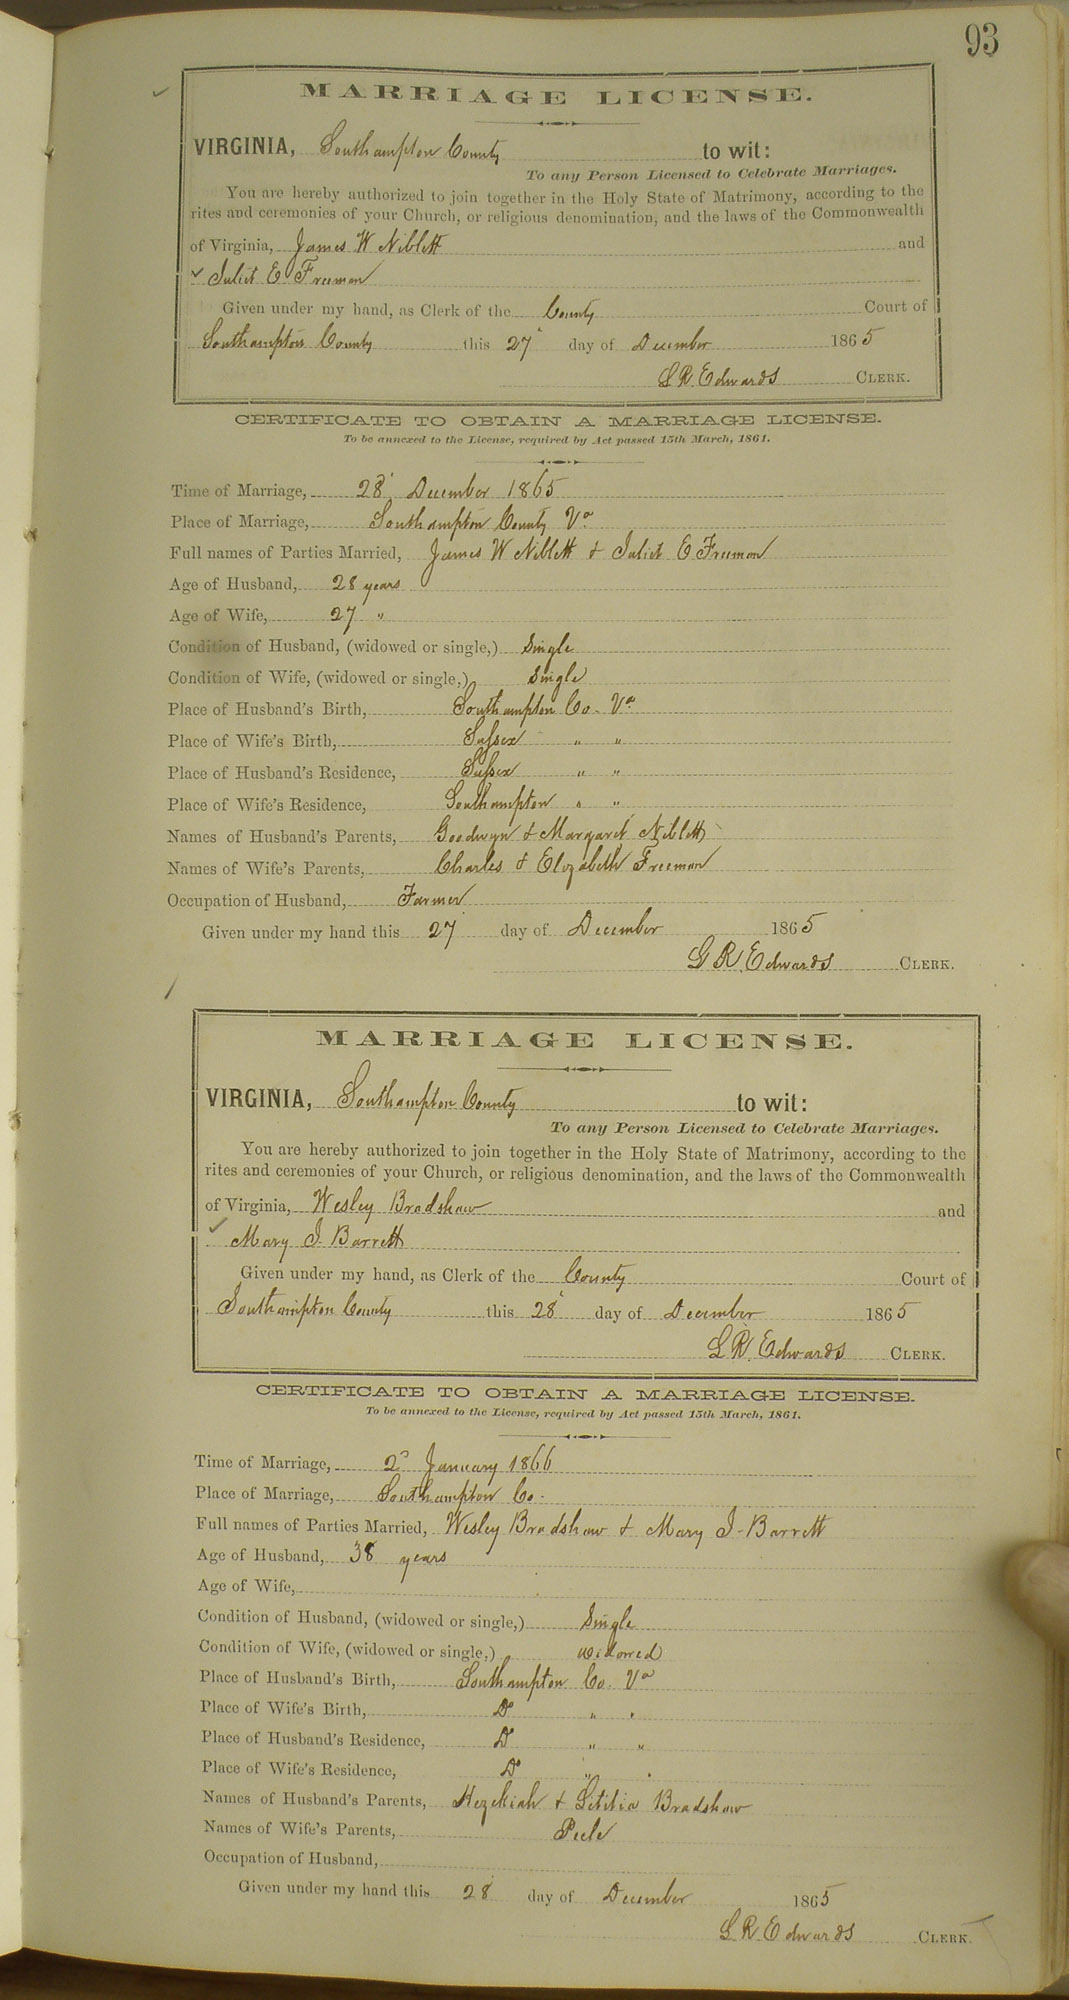 93
MARRIAGE LICENSE.
VIRGINIA, Southampton County to wit:
To any Person Licensed to Celebrate Marriages.
You are hereby authorized to join together in the Holy State of Matrimony, according to the
rites and ceremonies of your Church, or religious denomination, and the laws of the Commonwealth
of Virginia, James W Niblett and
Juliet E Freeman
Given under my hand, as Clerk of the County Court of
Southampton County this 27 day of December 1865
L R Edwards CLERK.
CERTIFICATE TO OBTAIN A MARRIAGE LICENSE.
To be annexed to the License, required by Act passed 15th March, 1861.
Time of Marriage, 28 December 1865
Place of Marriage, Southampton County Va
Full names of Parties Married, James W Niblett & Juliet E Freeman
Age of Husband, 28 years
Age of Wife, 27 "
Condition of Husband, (widowed or single,) Single
Condition of Wife, (widowed or single,) Single
Place of Husband's Birth, Southampton Co. Va
Place of Wife's Birth, Sussex " "
Place of Husband's Residence, Sussex " "
Place of Wife's Residence, Southampton " "
Names of Husband's Parents, Goodwyn & Margaret Niblett
Names of Wife's Parents, Charles & Elizabeth Freeman
Occupation of Husband, Farmer
Given under my hand this 27 day of December 1865
L R. Edwards CLERK.
MARRIAGE LICENSE.
VIRGINIA, Southampton County to wit:
To any Person Licensed to Celebrate Marriages.
You are hereby authorized to join together in the Holy State of Matrimony, according to the
rites and ceremonies of your Church, or religious denomination, and the laws of the Commonwealth
of Virginia, Wesley Bradshaw and
Mary J. Barrett
Given under my hand, as Clerk of the County Court of
Southampton County this 28 day of December 1865
L R. Edwards CLERK.
CERTIFICATE TO OBTAIN A MARRIAGE LICENSE.
To be annexed to the License, required by Act passed 15th March, 1861.
Time of Marriage, 2d January 1866
Place of Marriage, Southampton Co.
Full names of Parties Married, Wesley Bradshaw & Mary J. Barrett
Age of Husband, 38 years
Age of Wife,
Condition of Husband, (widowed or single,) Single
Condition of Wife, (widowed or single,) widowed
Place of Husband's Birth, Southampton Co. Va
Place of Wife's Birth, Do " "
Place of Husband's Residence, Do " "
Place of Wife's Residence, Do " "
Names of Husband's Parents, Hezekiah & Letitia Bradshaw
Names of Wife's Parents, Peele
Occupation of Husband,
Given under my hand this 28 day of December 1865
L. R. Edwards CLERK.